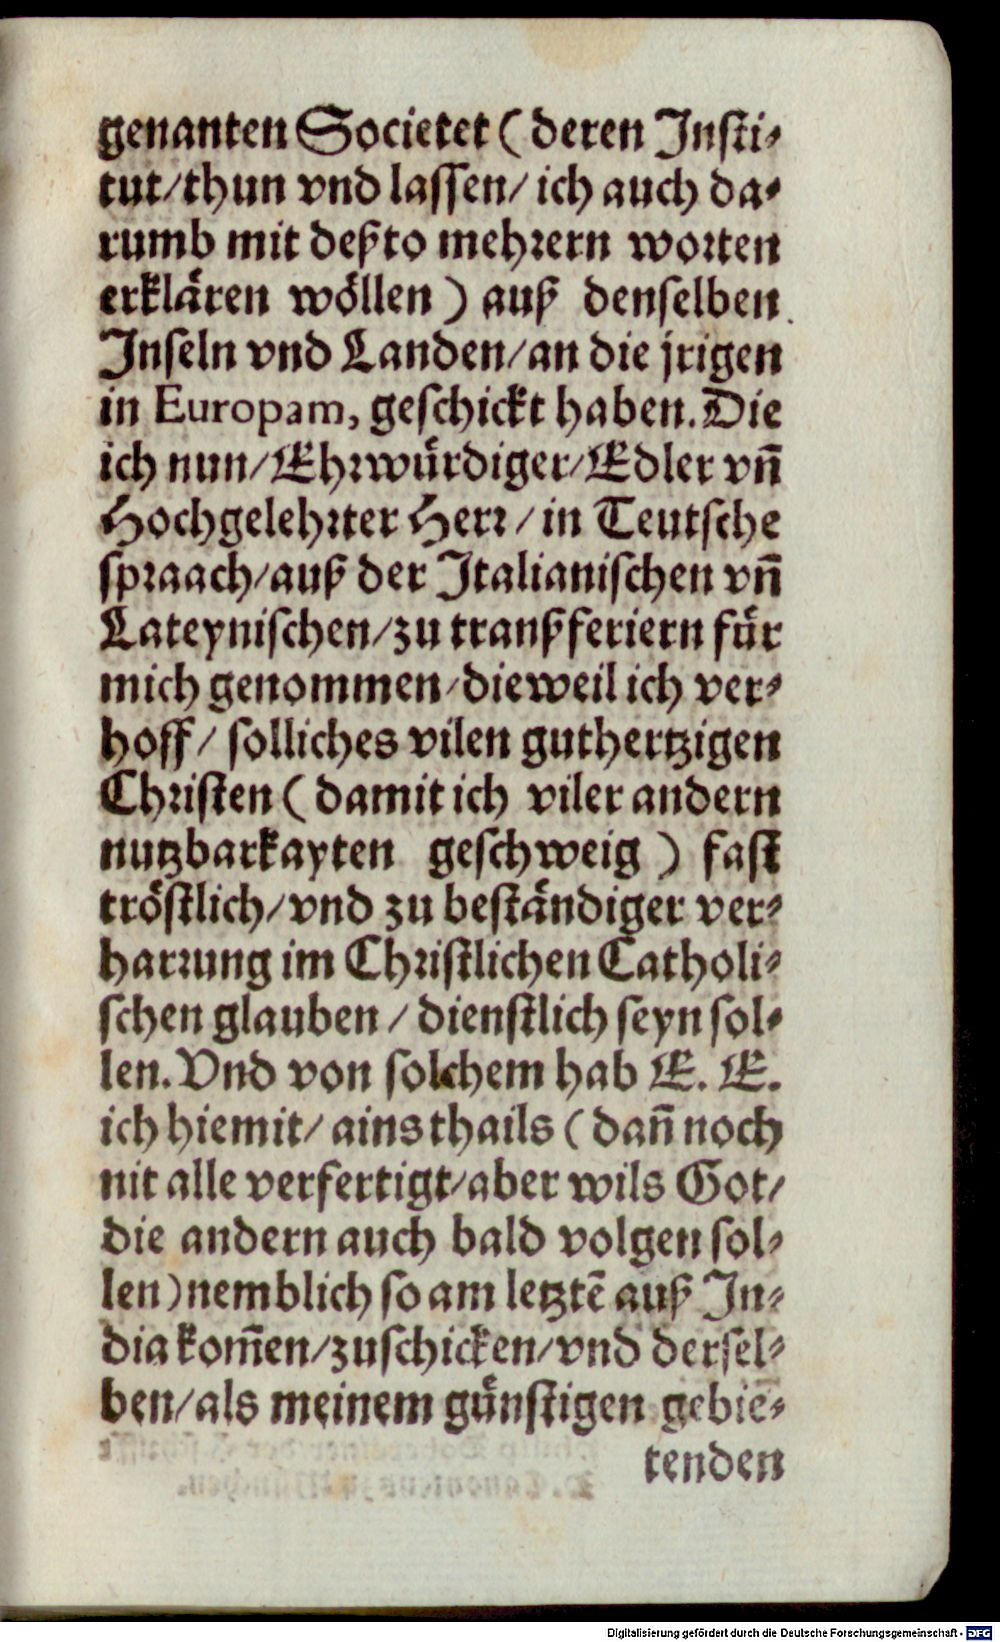 genanten Societet (deren Insti⸗
tut/thun vnd lassen/ ich auch da⸗
rumb mit deßto mehrern worten
erklären wöllen) auß denselben
Inseln vnd Landen/an die jrigen
in Europam, geschickt haben. Die
ich nun/Ehrwürdiger/Edler vñ
Hochgelehrter Herr/in Teutsche
spraach/auß der Italianischen vñ
Lateynischen/zu tranßferiern für
mich genommen/dieweil ich ver⸗
hoff/ solliches vilen guthertzigen
Christen (damit ich viler andern
nutzbarkayten geschweig) fast
tröstlich/vnd zu beständiger ver⸗
harrung im Christlichen Catholi⸗
schen glauben/ dienstlich seyn sol⸗
len. Vnd von solchem hab E. E.
ich hiemit/ ains thails (dañ noch
nit alle verfertigt/aber wils Got/
die andern auch bald volgen sol⸗
len) nemblich so am letztẽ auß In⸗
dia kom̃en/zuschicken/vnd dersel⸗
ben/als meinem günstigen gebie⸗
tenden
Digitalisierung gefördert durch die Deutsche Forschungsgemeinschaft - DFG